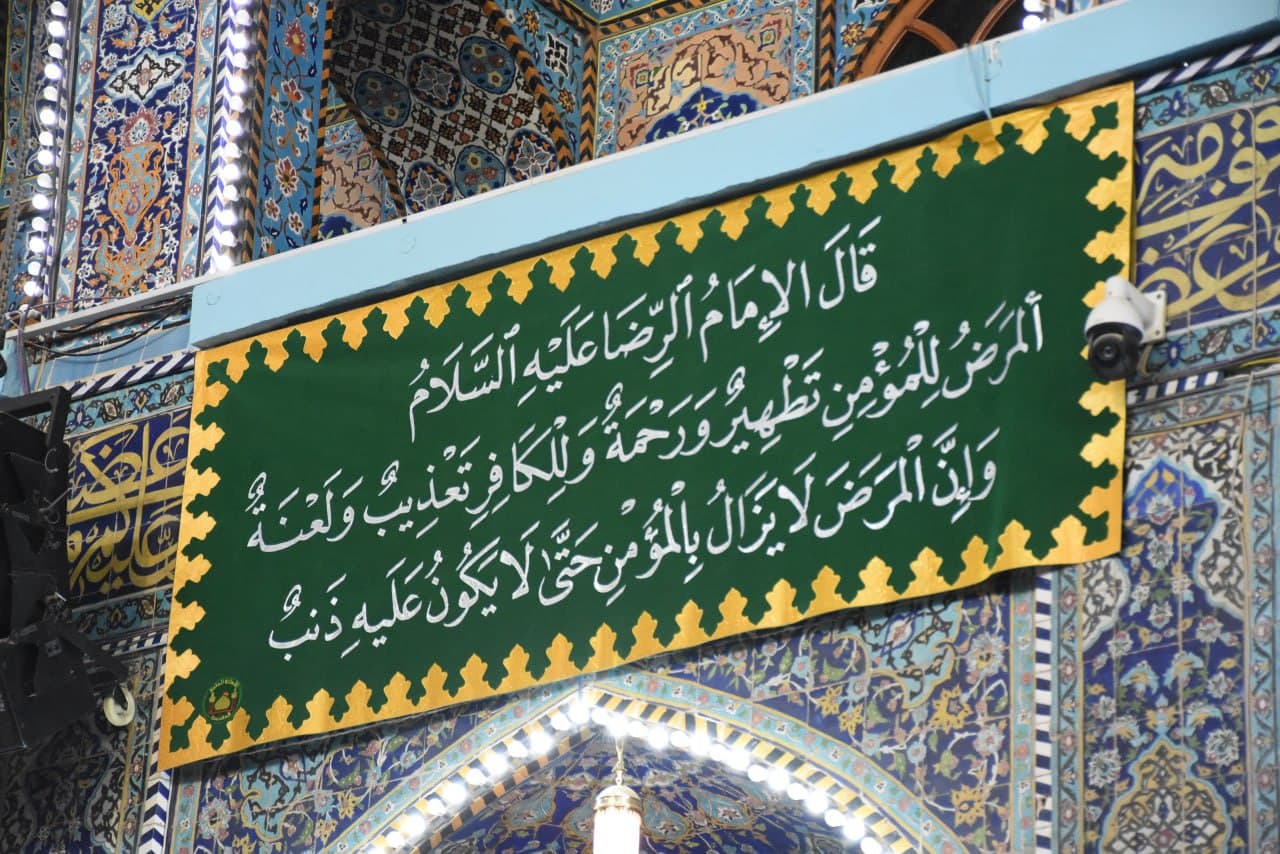 قَالَ الإِمَامُ ٱلرِّضَا عَلَيْهِ ٱلسَّلَامُ
ٱلمَرَضُ لِلْمُؤْمِنِ تَطْهِيرٌ وَرَحْمَةٌ وَلِلْكَافِرِ تَعْذِيبٌ وَلَعْنَةٌ
وَإِنَّ ٱلْمَرَضَ لَا يَزَالُ بِالْمُؤْمِنِ حَتَّىٰ لَا يَكُونُ عَلَيهِ ذَنبٌ